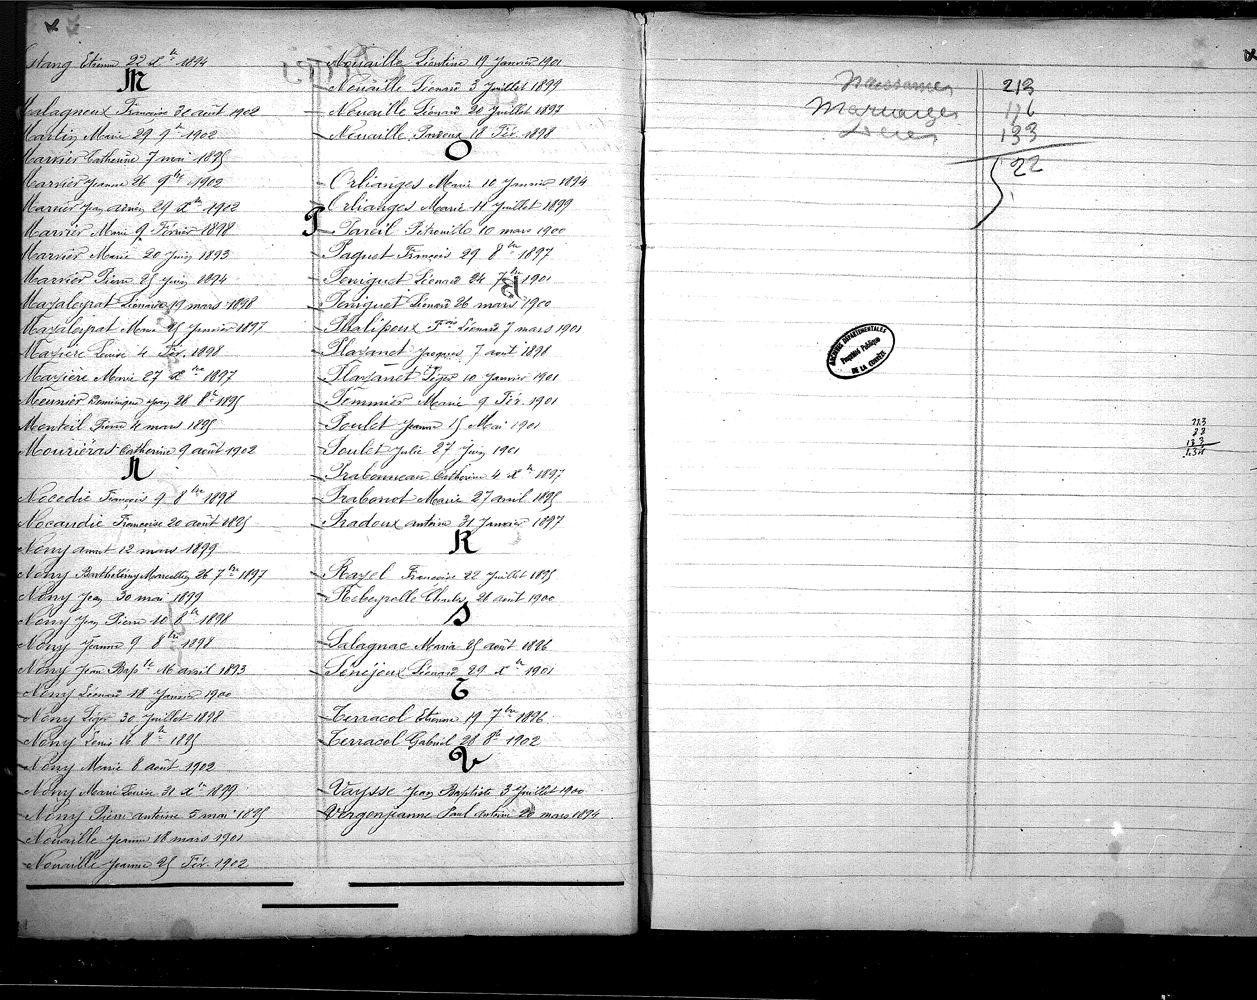 Estang Etienne 22 Xbre 1894
M
Malagneux Françoise 30 août 1902
Martin Marie 29 9bre 1902
Marvier Catherine 7 mai 1895
Marvier Jeanne 26 9bre 1902
Marvier Jean 29 Xbre 1902
Marvier Marie 9 Février 1898
Marvier Marie 20 Juin 1893
Marvier Pierre 25 Juin 1894
Mazaleyrat Léonard 19 mars 1898
Mazaleyrat Marie 25 Janvier 1897
Mazière Louise 4 Fév. 1898
Mazière Marie 27 Xbre 1897
Meunier Dominique Jean 28 8bre 1895
Monteil Pierre 4 mars 1895
Mouriéras Catherine 9 août 1902
N
Nocedie François 9 8bre 1898
Nocaudie Françoise 20 août 1895
Nony 12 mars 1899
Nony Barthélémy Marcellin 26 7bre 1897
Nony Jean 30 mai 1899
Nony Jean Pierre 10 8bre 1898
Nony Jeanne 9 8bre 1898
Nony Jean Bapte 16 avril 1893
Nony Léonard 18 Janvier 1900
Nony Léger 30 Juillet 1898
Nony Louis 16 8bre 1895
Nony Marie 8 août 1902
Nony Marie Louise 31 Xbre 1899
Nony Pierre antoine 5 mai 1895
Nouaille Jeanne 18 mars 1901
Nouaille Jeanne 25 Fév. 1902
Nouaille Léontine 19 Janvier 1901
Nouaille Léonard 3 Juillet 1899
Nouaille Léonard 20 Juillet 1897
Nouaille Pardoux 18 Fév. 1898
O
Orlianges Marie 10 Janvier 1894
Orlianges Marie 11 Juillet 1899
P
Pareil Pétronille 10 mars 1900
Paquet François 29 8bre 1897
Peniguet Léonard 24 7bre 1901
Peniguet Léonard 26 mars 1900
Phalipoux Fois Léonard 7 mars 1901
Plazanet Jacques 7 août 1898
Plazanet Léger 10 Janvier 1901
Pommier Marie 9 Fév. 1901
Poulet Jeanne 15 Mai 1901
Poulet Julie 27 Juin 1901
Prabonneau Catherine 4 Xbre 1897
Prabonot Marie 27 avril 1895
Pradoux antoine 31 Janvier 1897
R
Razel Françoise 22 Juillet 1895
Rebeyrolle Charles 21 août 1900
S
Salagnac Maria 25 août 1896
Sénéjoux Léonard 29 Xbre 1901
T
Terracol Etienne 19 7bre 1896
Terracol Gabriel 28 8bre 1902
V
Vaysse Jean Baptiste 3 Juillet 1900
Vergonjeanne Paul antoine 20 mars 1894
Naissances 213
Mariages 176
Décès 133
522
ARCHIVES DÉPARTEMENTALES
Propriété Publique
DE LA CORRÈZE